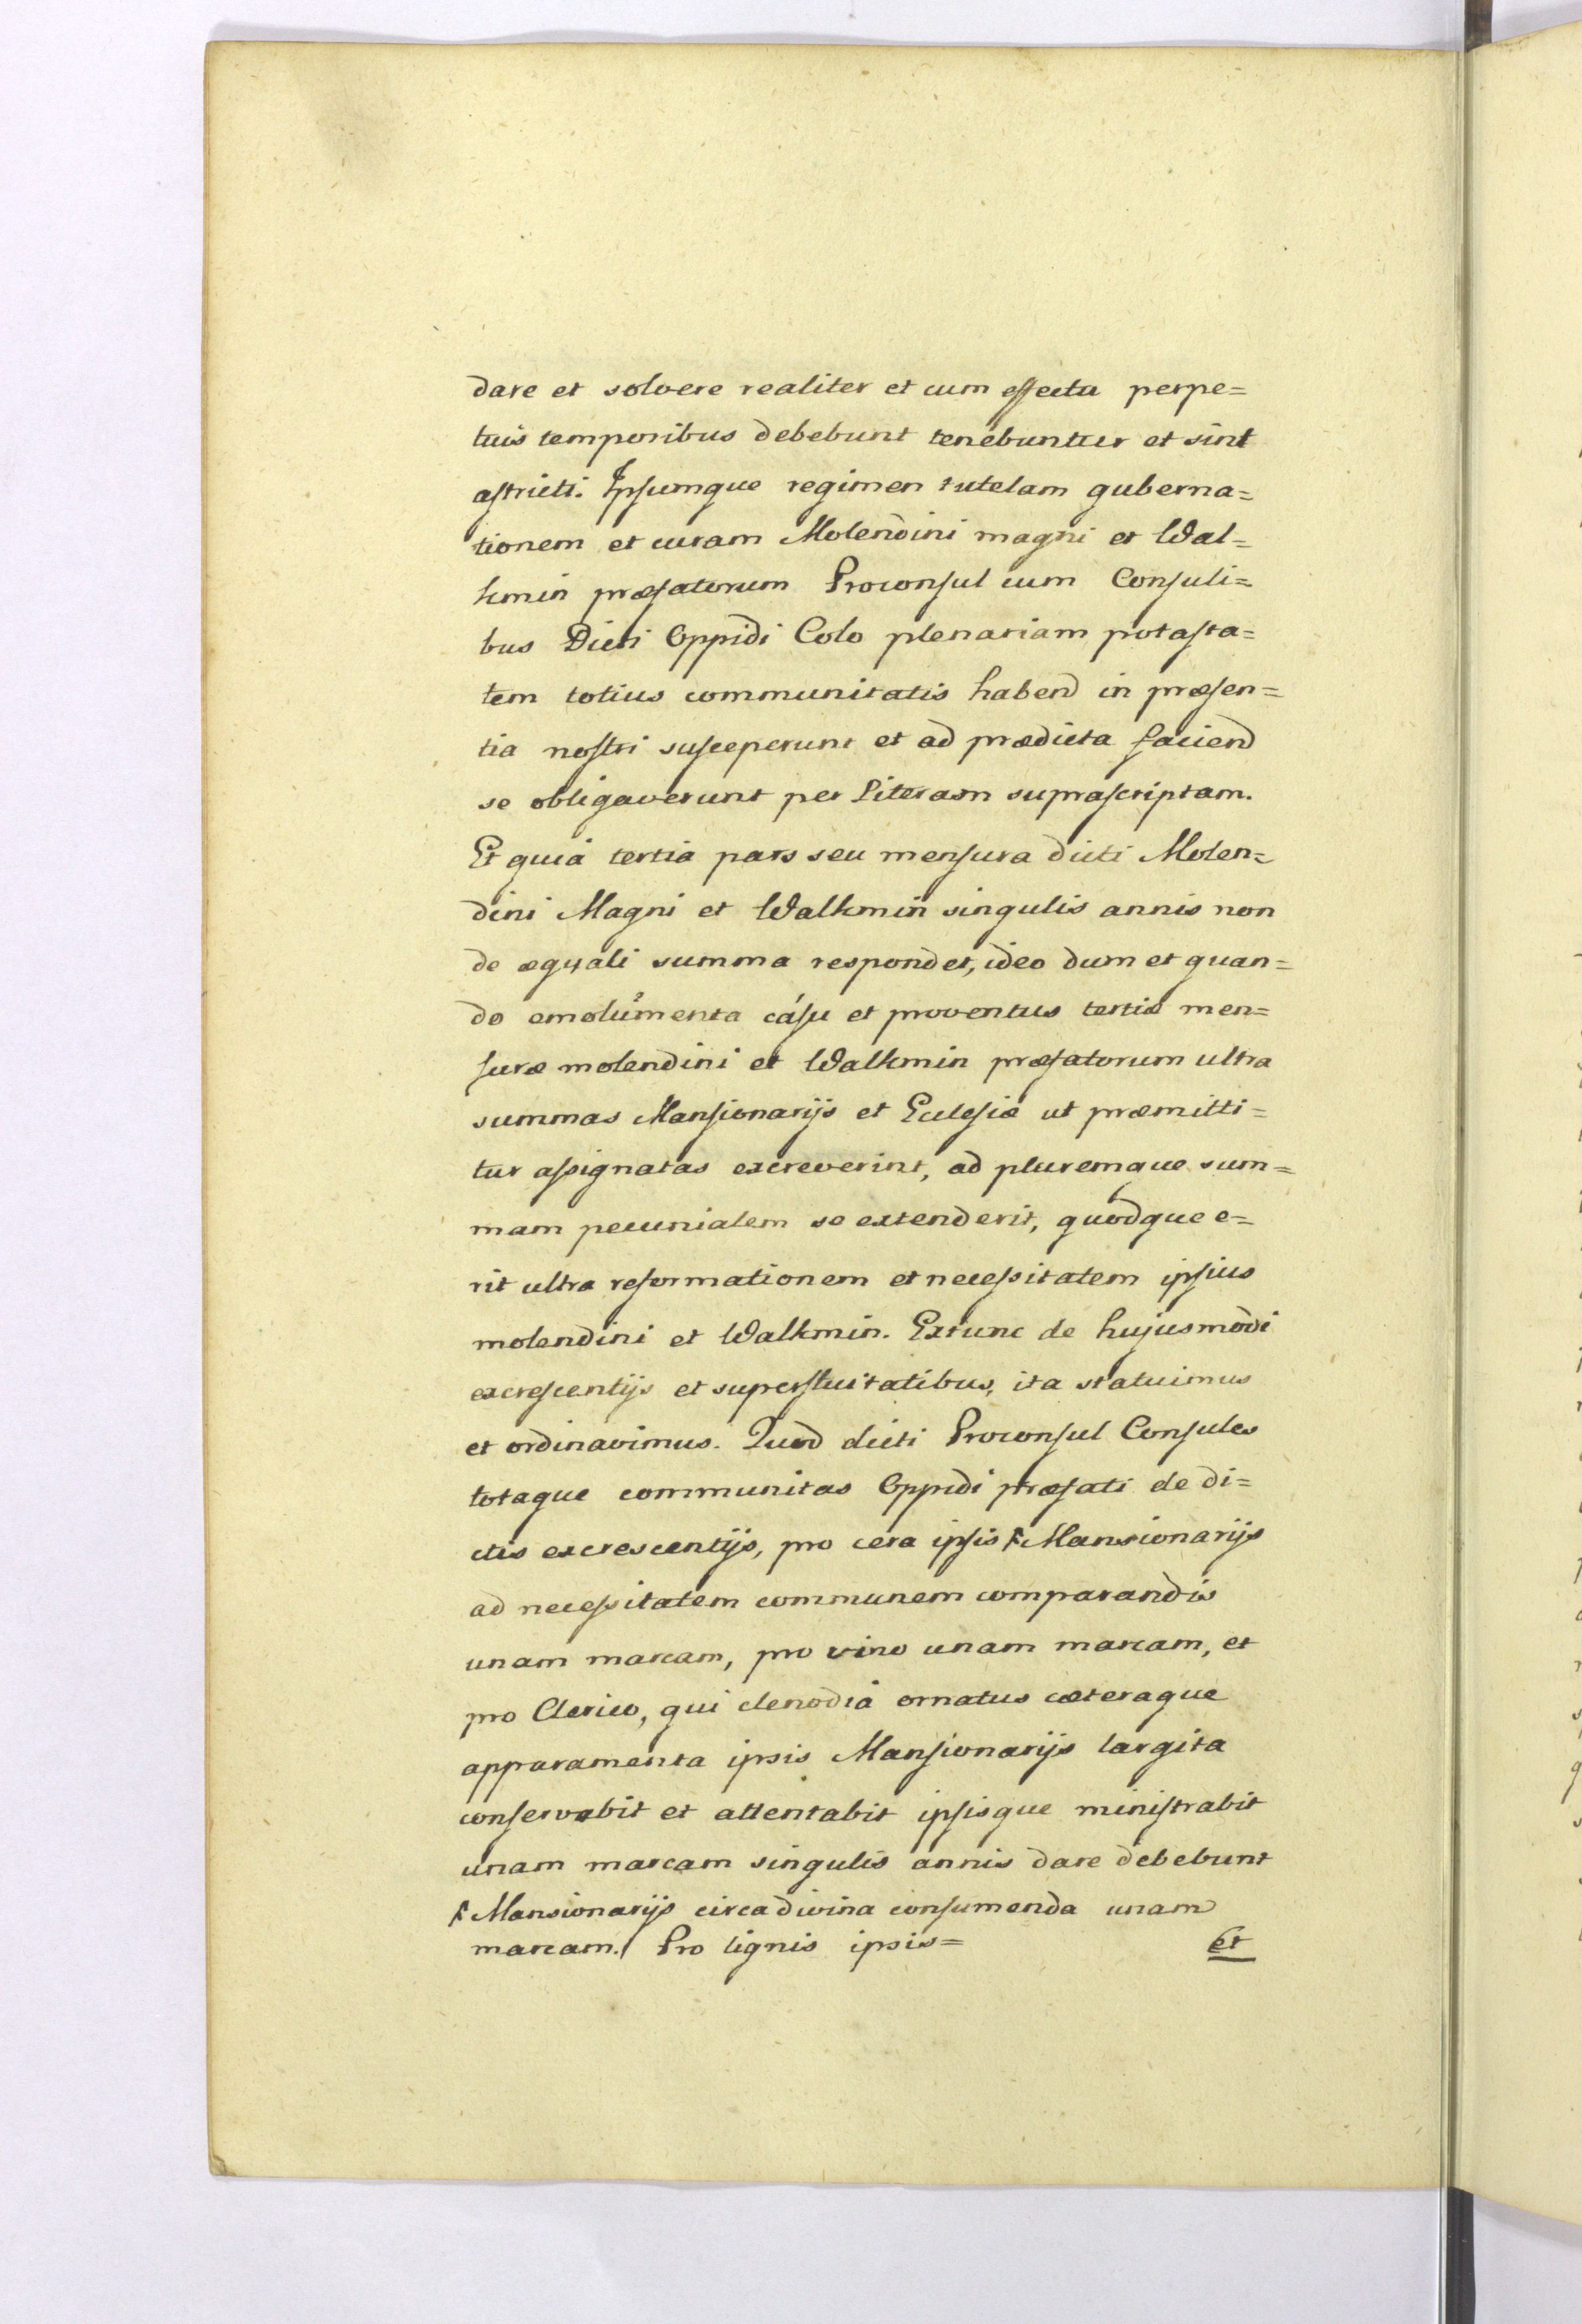 dare et solvere realiter et cum effectu perpe=
tuis temporibus debebunt tenebuntur et sint
astricti. Ipsumque regimen tutelam guberna=
tionem et curam Molendini magni et Wal=
kmin præfatorum Proconsul cum Consuli=
bus Dicti Oppidi Colo plenariam potasta=
tem totius communitatis habend in præsen=
tia nostri susceperunt et ad prædicta faciend
se obligaverunt per Literam suprascriptam.
Et quia tertia pars seu mensura dicti Molen=
dini Magni et Walkmin singulis annis non
de æquali summa respondet, ideo dum et quan=
do emolumenta casu et proventus tertiæ men=
suræ molendini et Walkmin præfatorum ultra
summas Mansionarijs et Eclesiæ ut præmitti=
tur assignatas excreverint, ad pluremque sum=
mam pecunialem se extenderit, quodque e=
rit ultra reformationem et necessitatem ipsius
molendini et Walkmin. Extunc de hujusmodi
excrescentijs et superfluitatibus, ita statuimus
et ordinavimus. Quod dicti Proconsul Consules
totaque communitas Oppidi præfati de di=
ctis excrescentijs, pro cera ipsis Mansionarijs
ad necessitatem communem comparandis
unam marcam, pro vino unam marcam, et
pro Clerico, qui clenodia ornatus cæteraque
apparamenta ipsis Mansionarijs largita
conservabit et attentabit ipsisque ministrabit
unam marcam singulis annis dare debebunt
Mansionarijs circa divina consumenda unam
marcam. Pro lignis ipsis=
Et